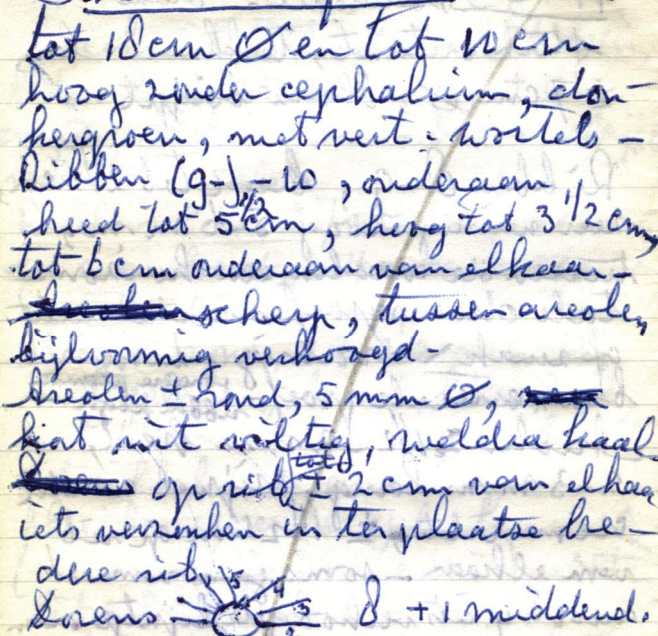 tot 18 cm Ø en tot 10 cm
hoog zonder cephalium, don-
kergroen, met vert. wortels -
Ribben (9-)-10, onderaan
breed tot 5 1/2 cm, hoog tot 3 1/2 cm,
tot 6 cm onderaan van elkaar -
scherp, tussen areolen
bijlvormig verhoogd -
Areolen ± rond, 5 mm Ø,
kort wit viltig, weldra kaal
op rib tot ± 2 cm van elkaar
iets verzonken in ter plaatse bre-
dere rib,
Dorens 5 4 3 2 8 + 1 middend.